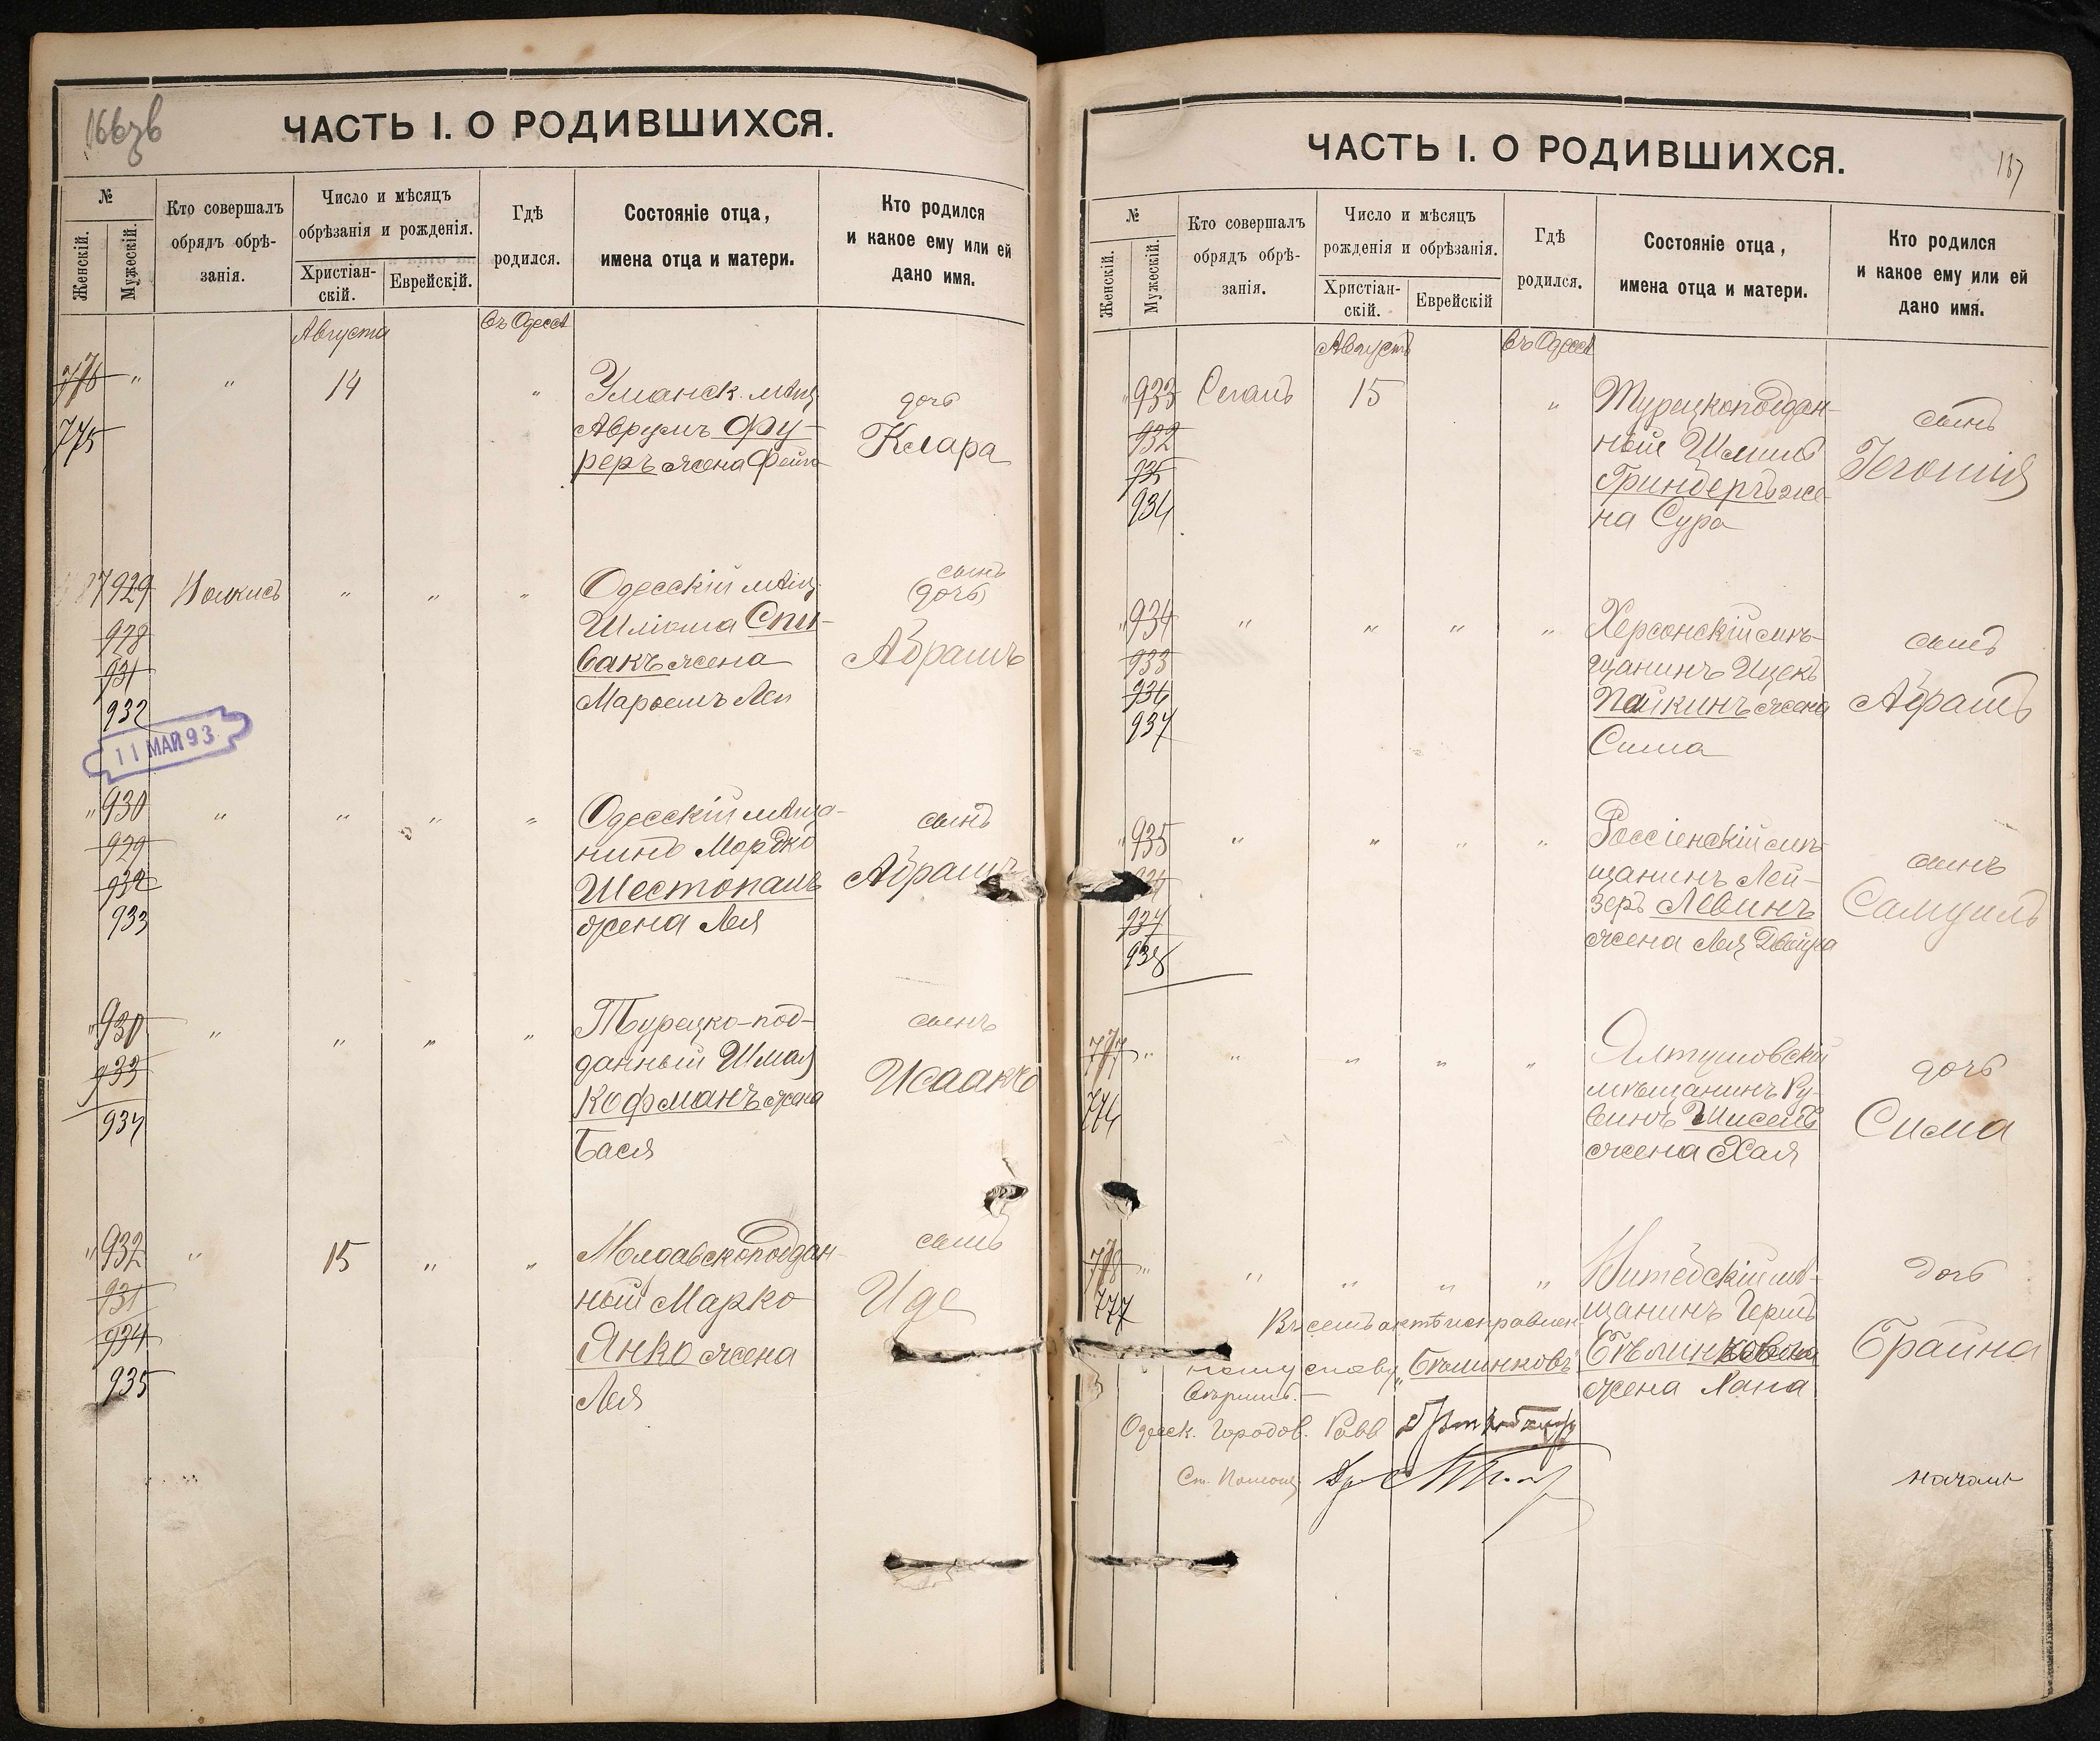 166зв
ЧАСТЬ I. О РОДИВШИХСЯ.
№
Женскій.
Мужескій.
Кто совершалъ
обрядъ обрѣ-
занія.
Число и мѣсяцъ
обрѣзанія и рожденія.
Христіан-
скій.
Еврейскій.
Гдѣ
родился.
Состояніе отца,
имена отца и матери.
Кто родился
и какое ему или ей
дано имя.
Августа
въ Одессѣ
776 " " 14 "
775
Уманск. мѣщ.
Аврумъ Фу-
реръ жена Фейга
дочь
Клара
929 " " "
928
931
932
11 МАЯ 93
Одесскій мѣщ.
Шліома Спи-
вакъ жена
Марьемъ Леи
сынъ
(дочь)
Абрамъ
" 930 " " " "
929
932
933
Одесскій мѣща-
нинъ Мордко
Шестопалъ
жена Лея
сынъ
Абрамъ
" 930 " " " "
933
934
Турецко-под-
данный Шмая
Кофманъ жена
Бася
сынъ
Исаакъ
" 932 " 15 " "
931
934
935
Молдавскоподдан-
ный Марко
Янко жена
Лея
сынъ
Иде
167
ЧАСТЬ I. О РОДИВШИХСЯ.
№
Женскій.
Мужескій.
Кто совершалъ
обрядъ обрѣ-
занія.
Число и мѣсяцъ
рожденія и обрѣзанія.
Христіан-
скій.
Еврейскій
Гдѣ
родился.
Состояніе отца,
имена отца и матери.
Кто родился
и какое ему или ей
дано имя.
Августъ
въ Одессѣ
" 933 Сегалъ 15 "
932
935
934
Турецкоподдан-
ный Шмиль
Гринбергъ же-
на Сура
сынъ
" 934 " " " "
933
936
937
Херсонскій мѣ-
щанинъ Ицекъ
Пайкинъ жена
Сима
сынъ
Абрамъ
" 935 " " " "
934
937
938
Россіенскій мѣ-
щанинъ Лей-
зеръ Левинъ
жена Лея Двейра
сынъ
Самуилъ
777 " " " " "
776
Ялтушовскій
мѣщанинъ Ру-
винъ
жена Хая
дочь
Сима
778 " " " " "
777
Витебскій мѣ-
щанинъ Гершъ
жена Хана
дочь
Брайна
Въ семъ актѣ исправлен-
ному слову „Бѣлинковъ"
вѣримъ.
Одесск. Городов. Равв
Ст. Помощ.